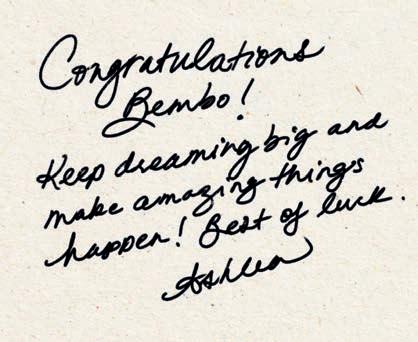 Congratulations
Bembo!
Keep dreaming big and
make amazing things
happen! Best of luck.